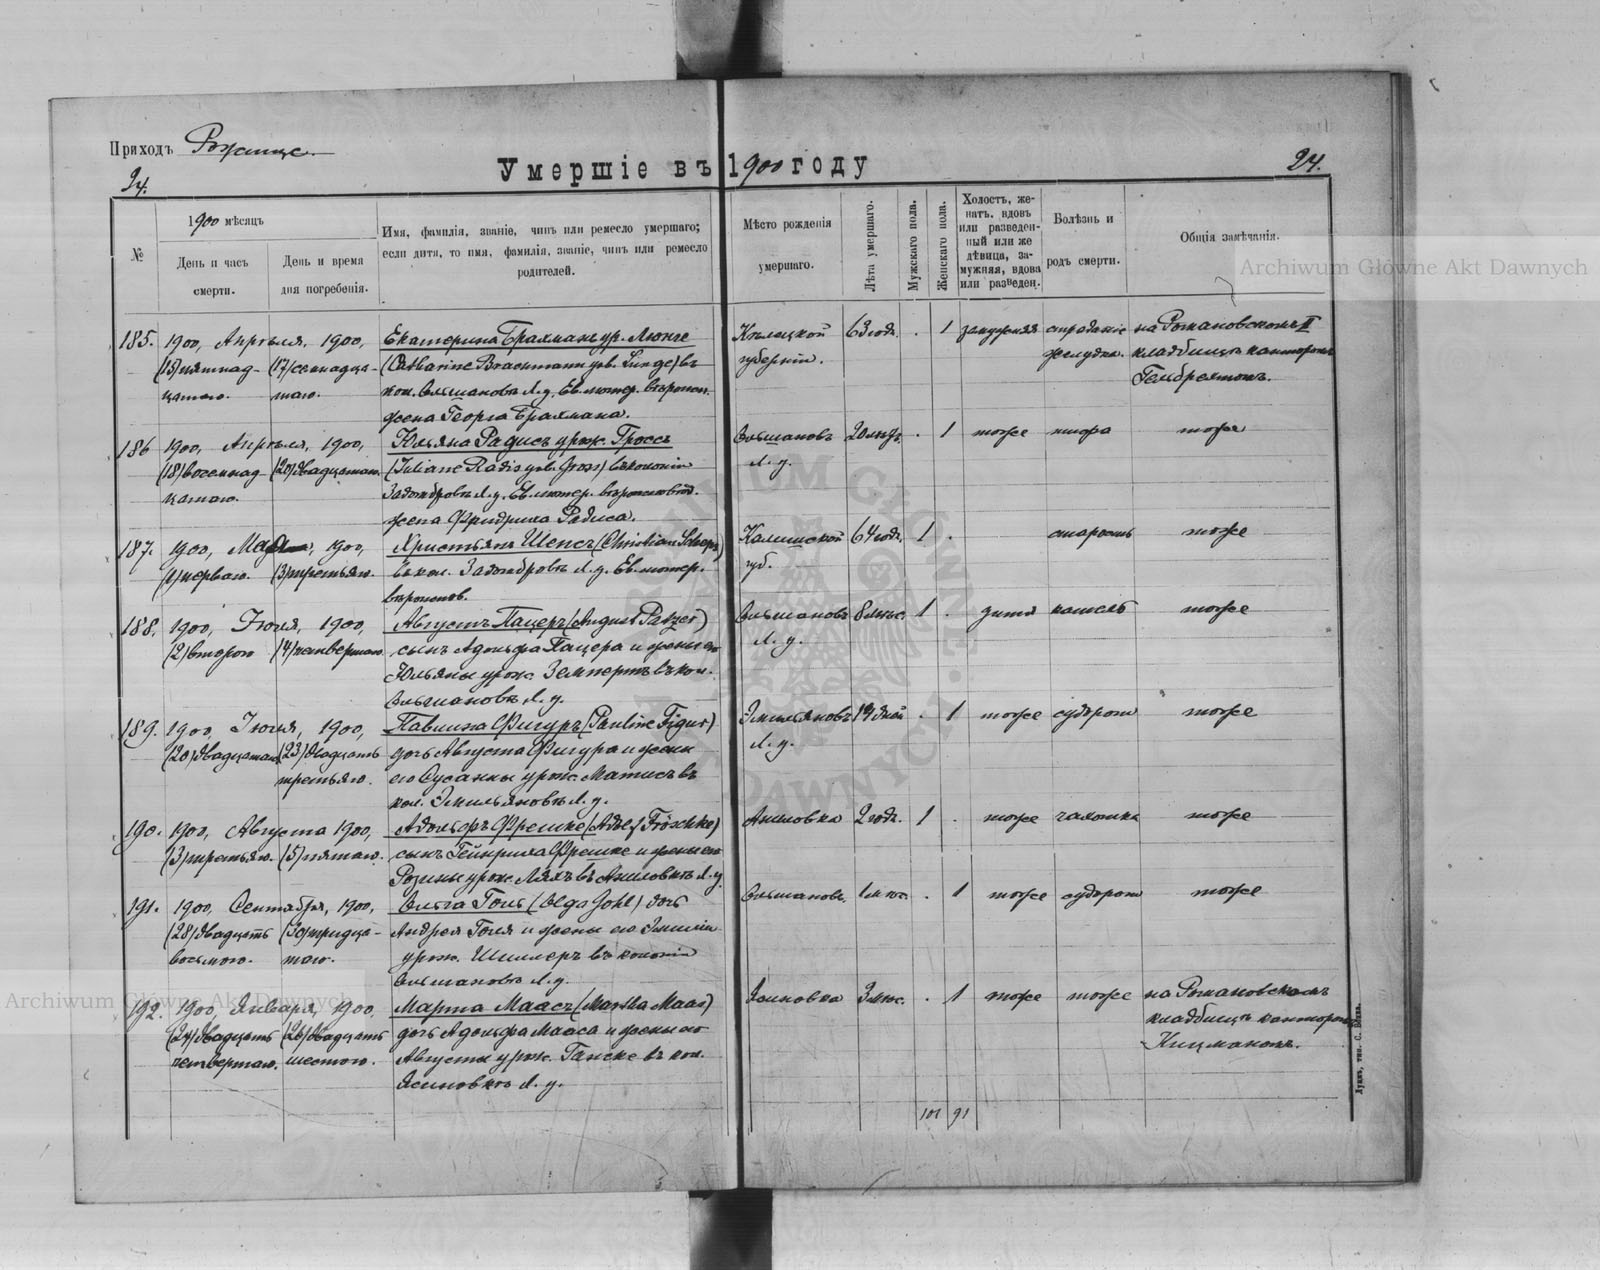 Приходъ Рожище.
Умершіе въ 1900 году
24.
24.
№
1900 мѣсяцъ
День и часъ смерти.
День и время дня погребенія.
Имя, фамилія, званіе, чинъ или ремесло умершаго;
если дитя, то имя, фамилія, званіе, чинъ или ремесло
родителей.
Мѣсто рожденія
умершаго.
Лѣта умершаго.
Мужскаго пола.
Женскаго пола.
Холостъ, же-
натъ, вдовъ
или разведен-
ный или же
дѣвица, за-
мужняя, вдова
или разведен.
Болѣзнь и
родъ смерти.
Общія замѣчанія.
185. 1900, Апрѣля, 1900, Екатерина Брахманъ ур. Люнге Кѣлецкой 63 год. . 1 замужняя страданіе на Романовскомъ II
(15) пятнад- (17) семнадца- (Catharine Brachmann geb. Lunge) въ губерніи. желудка. кладбищѣ канторомъ
цатаго. таго. кол. Ольшановъ Л. у. Ев. лютер. вѣроисп. Гембрехтомъ.
жена Георга Брахмана.
186 1900, Апрѣля, 1900, Юльяна Радисъ урж. Гроссъ Ольшановъ 20 лѣтъ . 1 тоже тоже
(18) восемнад (20) двадцатаго. (Juliane Radis geb. Gross) въ колоніи Л. у.
цатаго. Л. у. Ев. лютер.
жена Фридриха Радиса.
187. 1900, Мая, 1900, Христьянъ Шепсъ (Christian Scheps) Калишской 64 год. 1 . старость тоже
(1) перваго. (3) третьяго. въ кол. Л. у. Ев. лютер. губ.
вѣроиспов.
188. 1900, Іюля, 1900, Августъ Пацеръ (August Patzer) Ольшановъ 8 мѣс. 1 . дитя кашель тоже
(2) второго (4) четвертаго. сынъ Адольфа Пацера и жены его Л. у.
Юльяны урож. Землертъ въ кол.
Ольшановъ Л. у.
189. 1900, Іюля, 1900, Павлина Фигуръ (Pauline Figur) Эмильяновъ 14 дней . 1 тоже судорог тоже
(20) двадцатаго (23) двадцать дочь Августа Фигура и жены Л. у.
третьяго. его Сусанны урож. Матисъ въ
кол. Эмильяновъ Л. у.
190. 1900, Августа 1900, Адольфъ Фрешке (Adolf Fröschke) Аниловка 2 год. 1 . тоже чахотка тоже
(3) третьяго. (5) пятаго. сынъ Гейнриха Фрешке и жены его
Розины урож. Ляхъ въ Аниловкѣ Л. у.
191. 1900, Сентября, 1900, Ольга Голь (Olga Gohl) дочь Ольшановъ 1 мѣс. . 1 тоже судорог тоже
(28) двадцать (30) тридца- Андрея Голя и жены его Эмиліи
восьмого. таго. урож. Шиллеръ въ колоніи
Ольшановъ Л. у.
192. 1900, Января, 1900, Марта Маасъ (Martha Maas) Ясиновка 3 мѣс. . 1 тоже тоже на Романовскомъ
(24) двадцать (26) двадцать дочь Адольфа Мааса и жены его кладбищѣ канторомъ
четвертаго. шестого. Августы урож. Ганске въ кол. Кицманомъ.
Ясиновкѣ Л. у.
101 91
Луцкъ, тип. С. Бокмъ.
Archiwum Główne Akt Dawnych
Archiwum Główne Akt Dawnych
ARCHIWUM GŁÓWNE AKT DAWNYCH